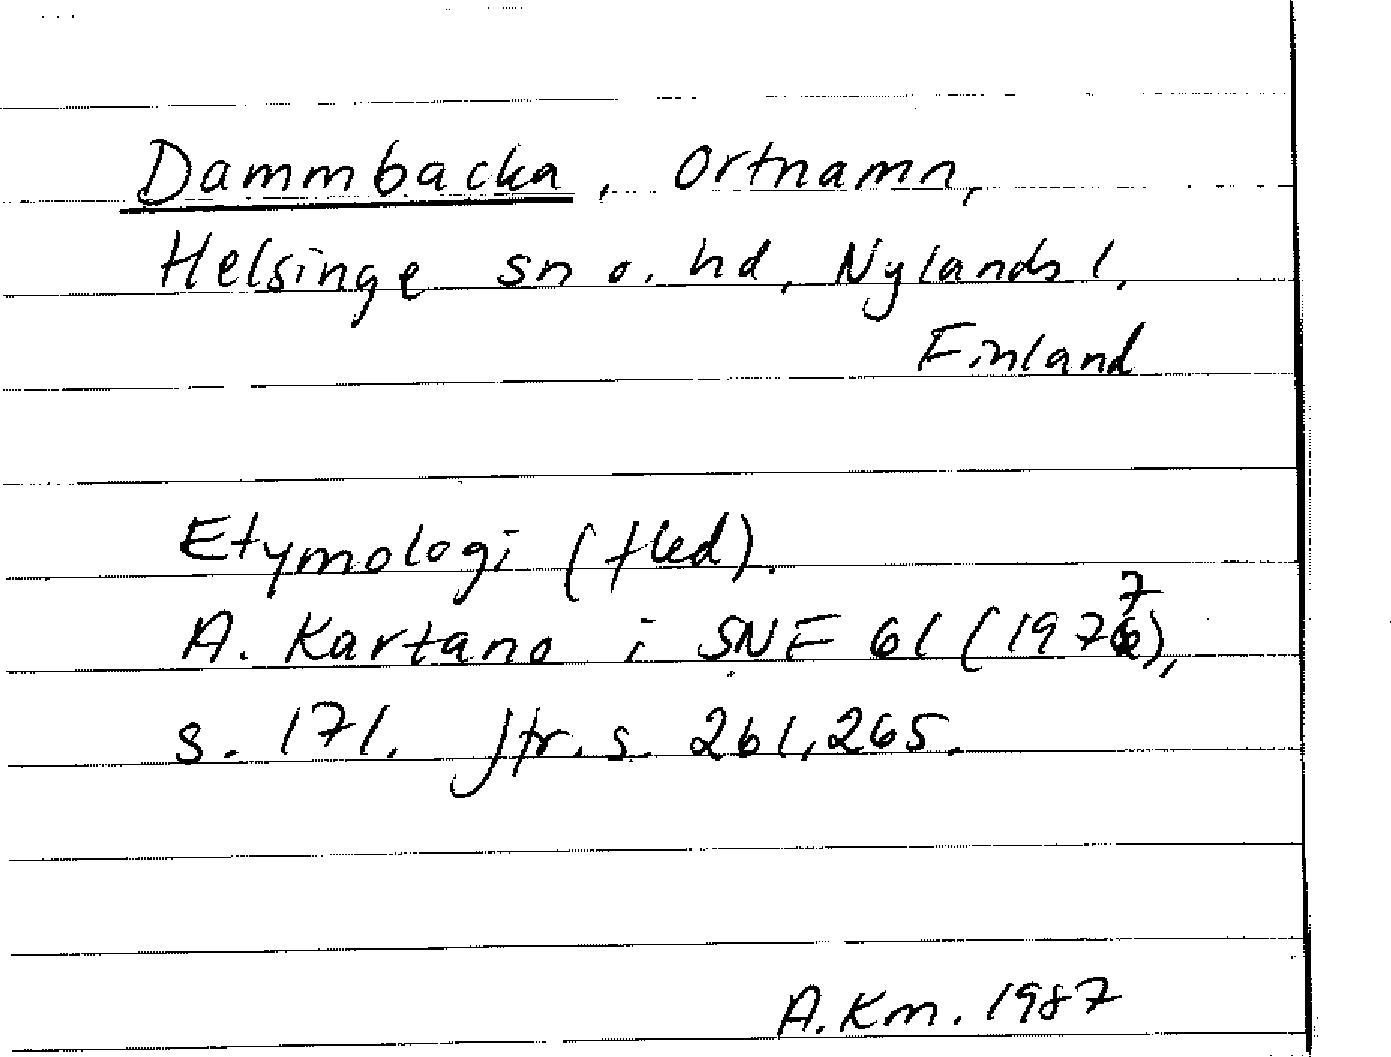 Dammbacka, Ortnamn,
Helsinge sn o. hd, Nylands l,
Finland
Etymologi (fled).
A. Kartano i SNF 61 (1977),
s. 171. Jfr. s. 261, 265.
A. Km. 1987